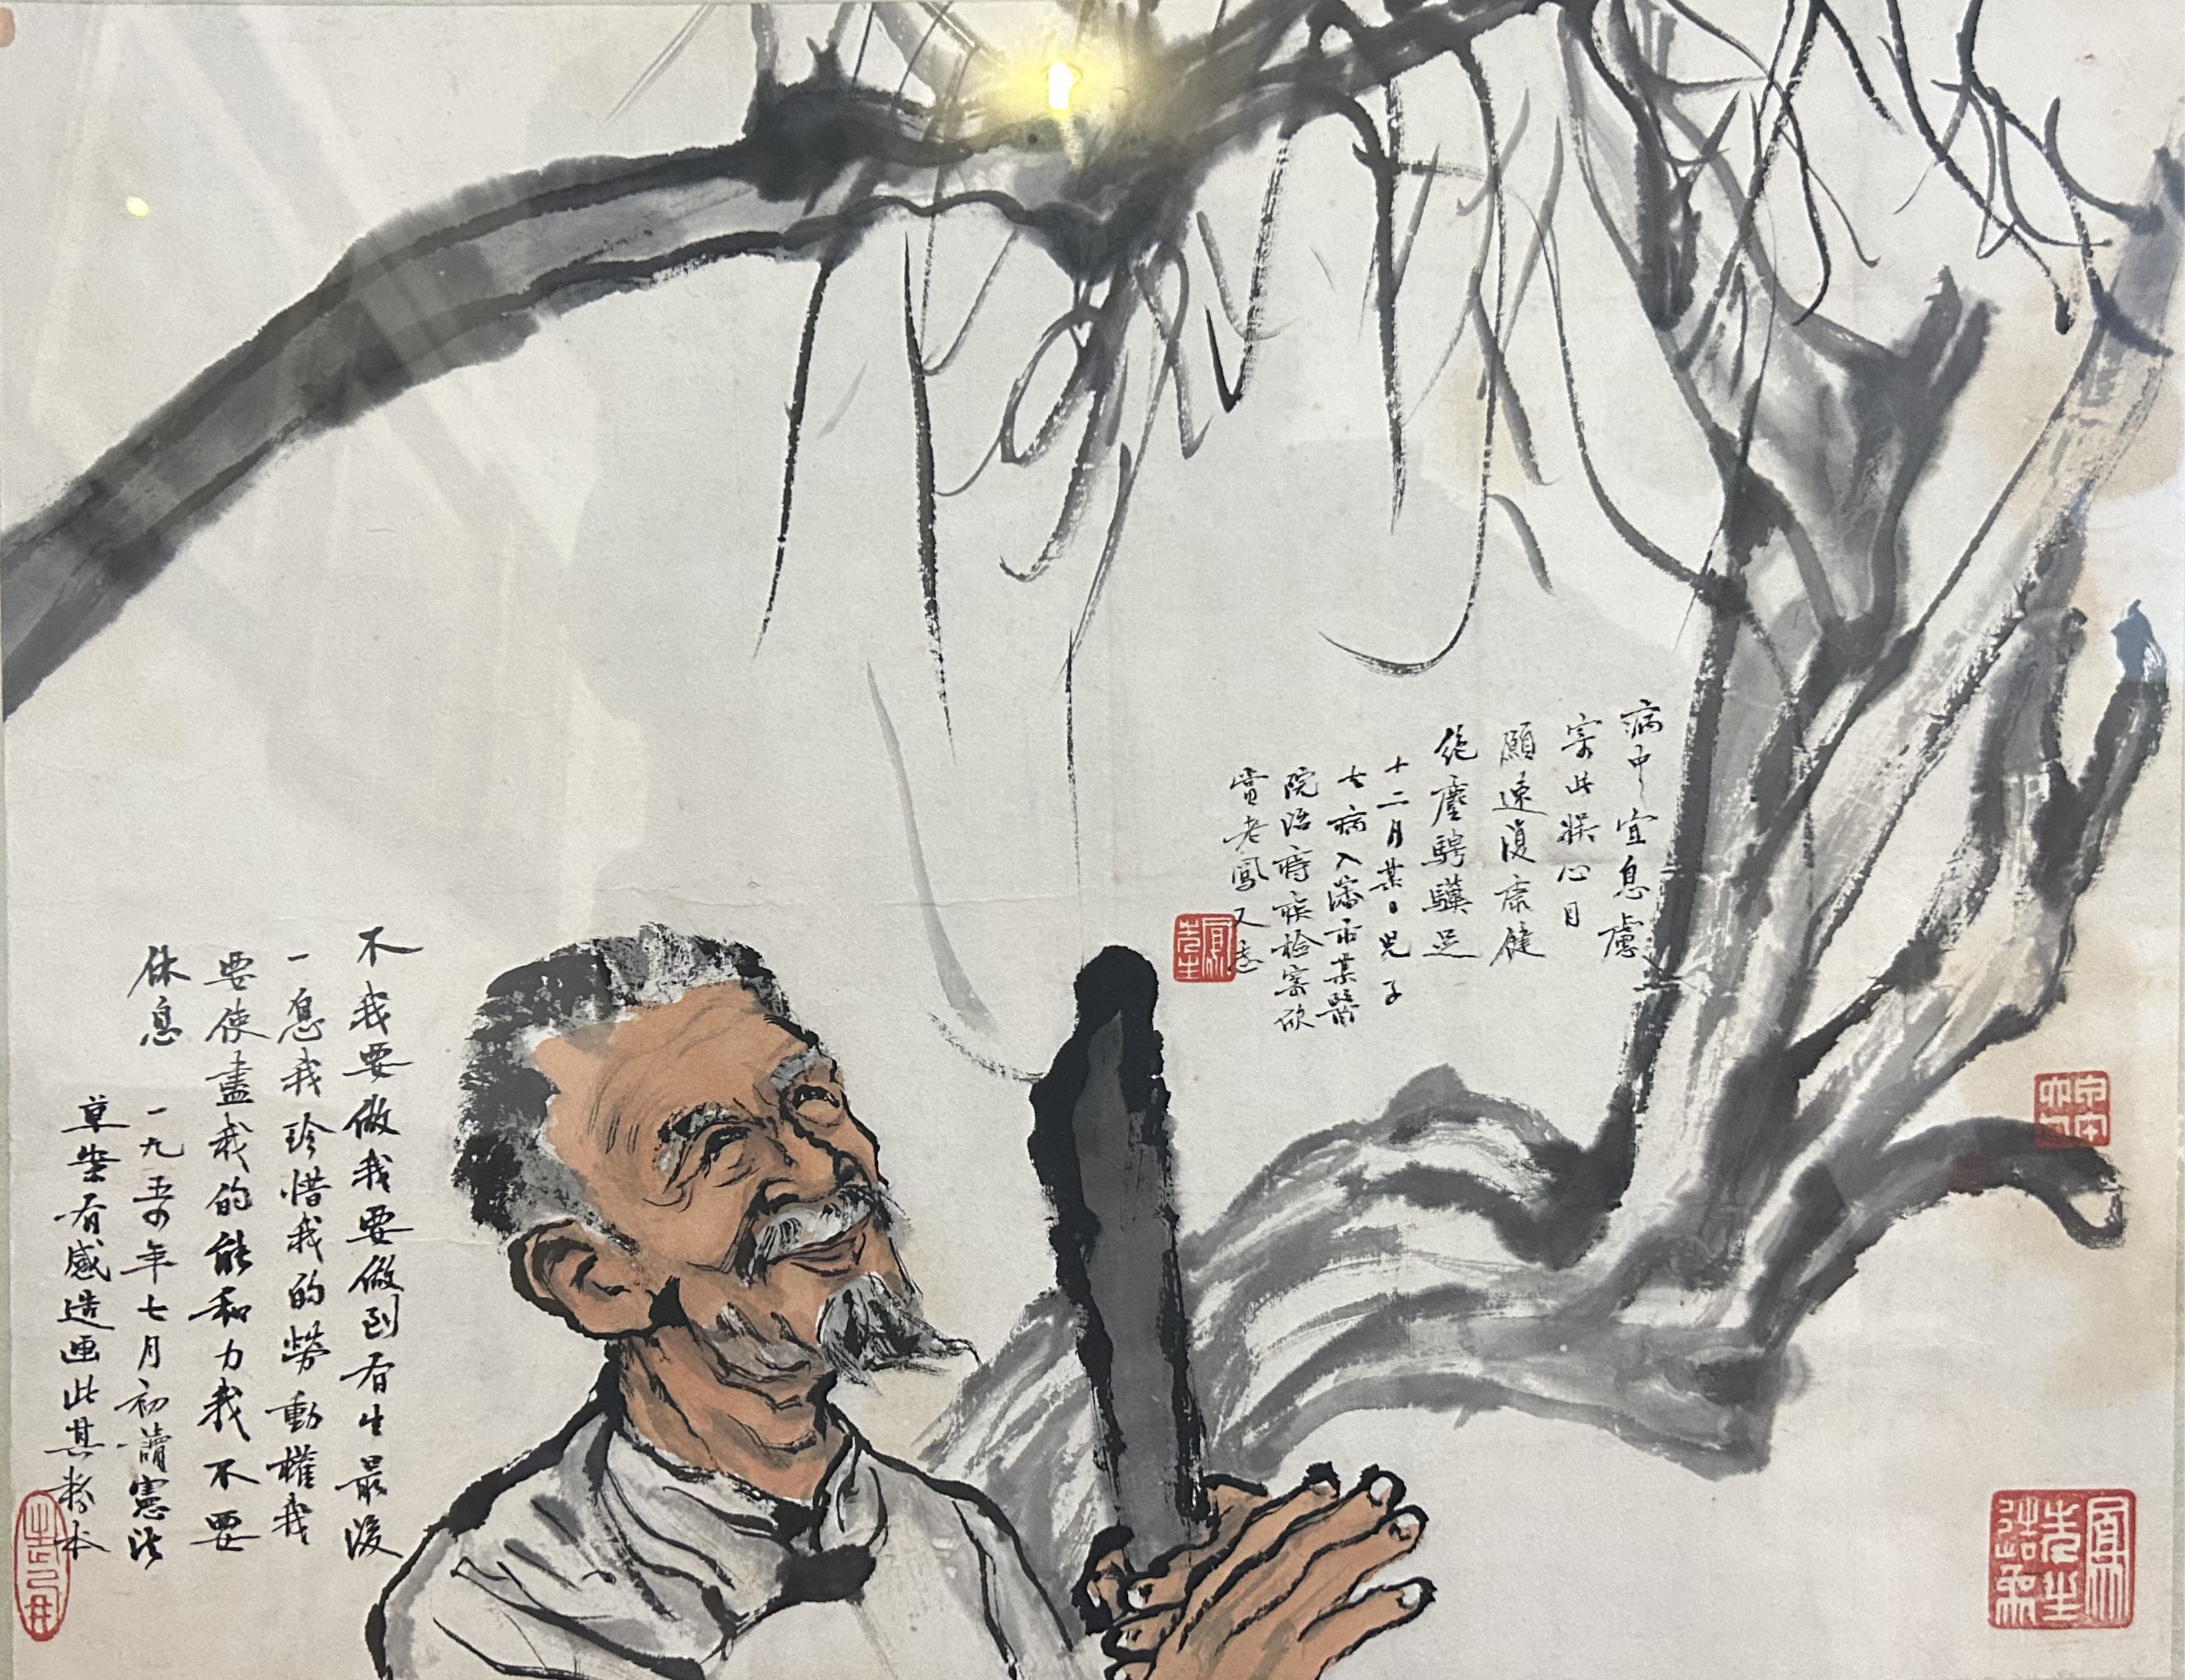 病中宜息慮
寄此娛心目
願速復康健
絕塵騁驥足
十二月某日兒子
七病入瀋市某醫
院治時疾檢寄欣
賞老鳳又志
不我要做我要做到有生最後
一息我珍惜我的勞動權我
要使盡我的能和力我不要
休息
一九五四年七月初讀憲法
草案有感造画此其粉本